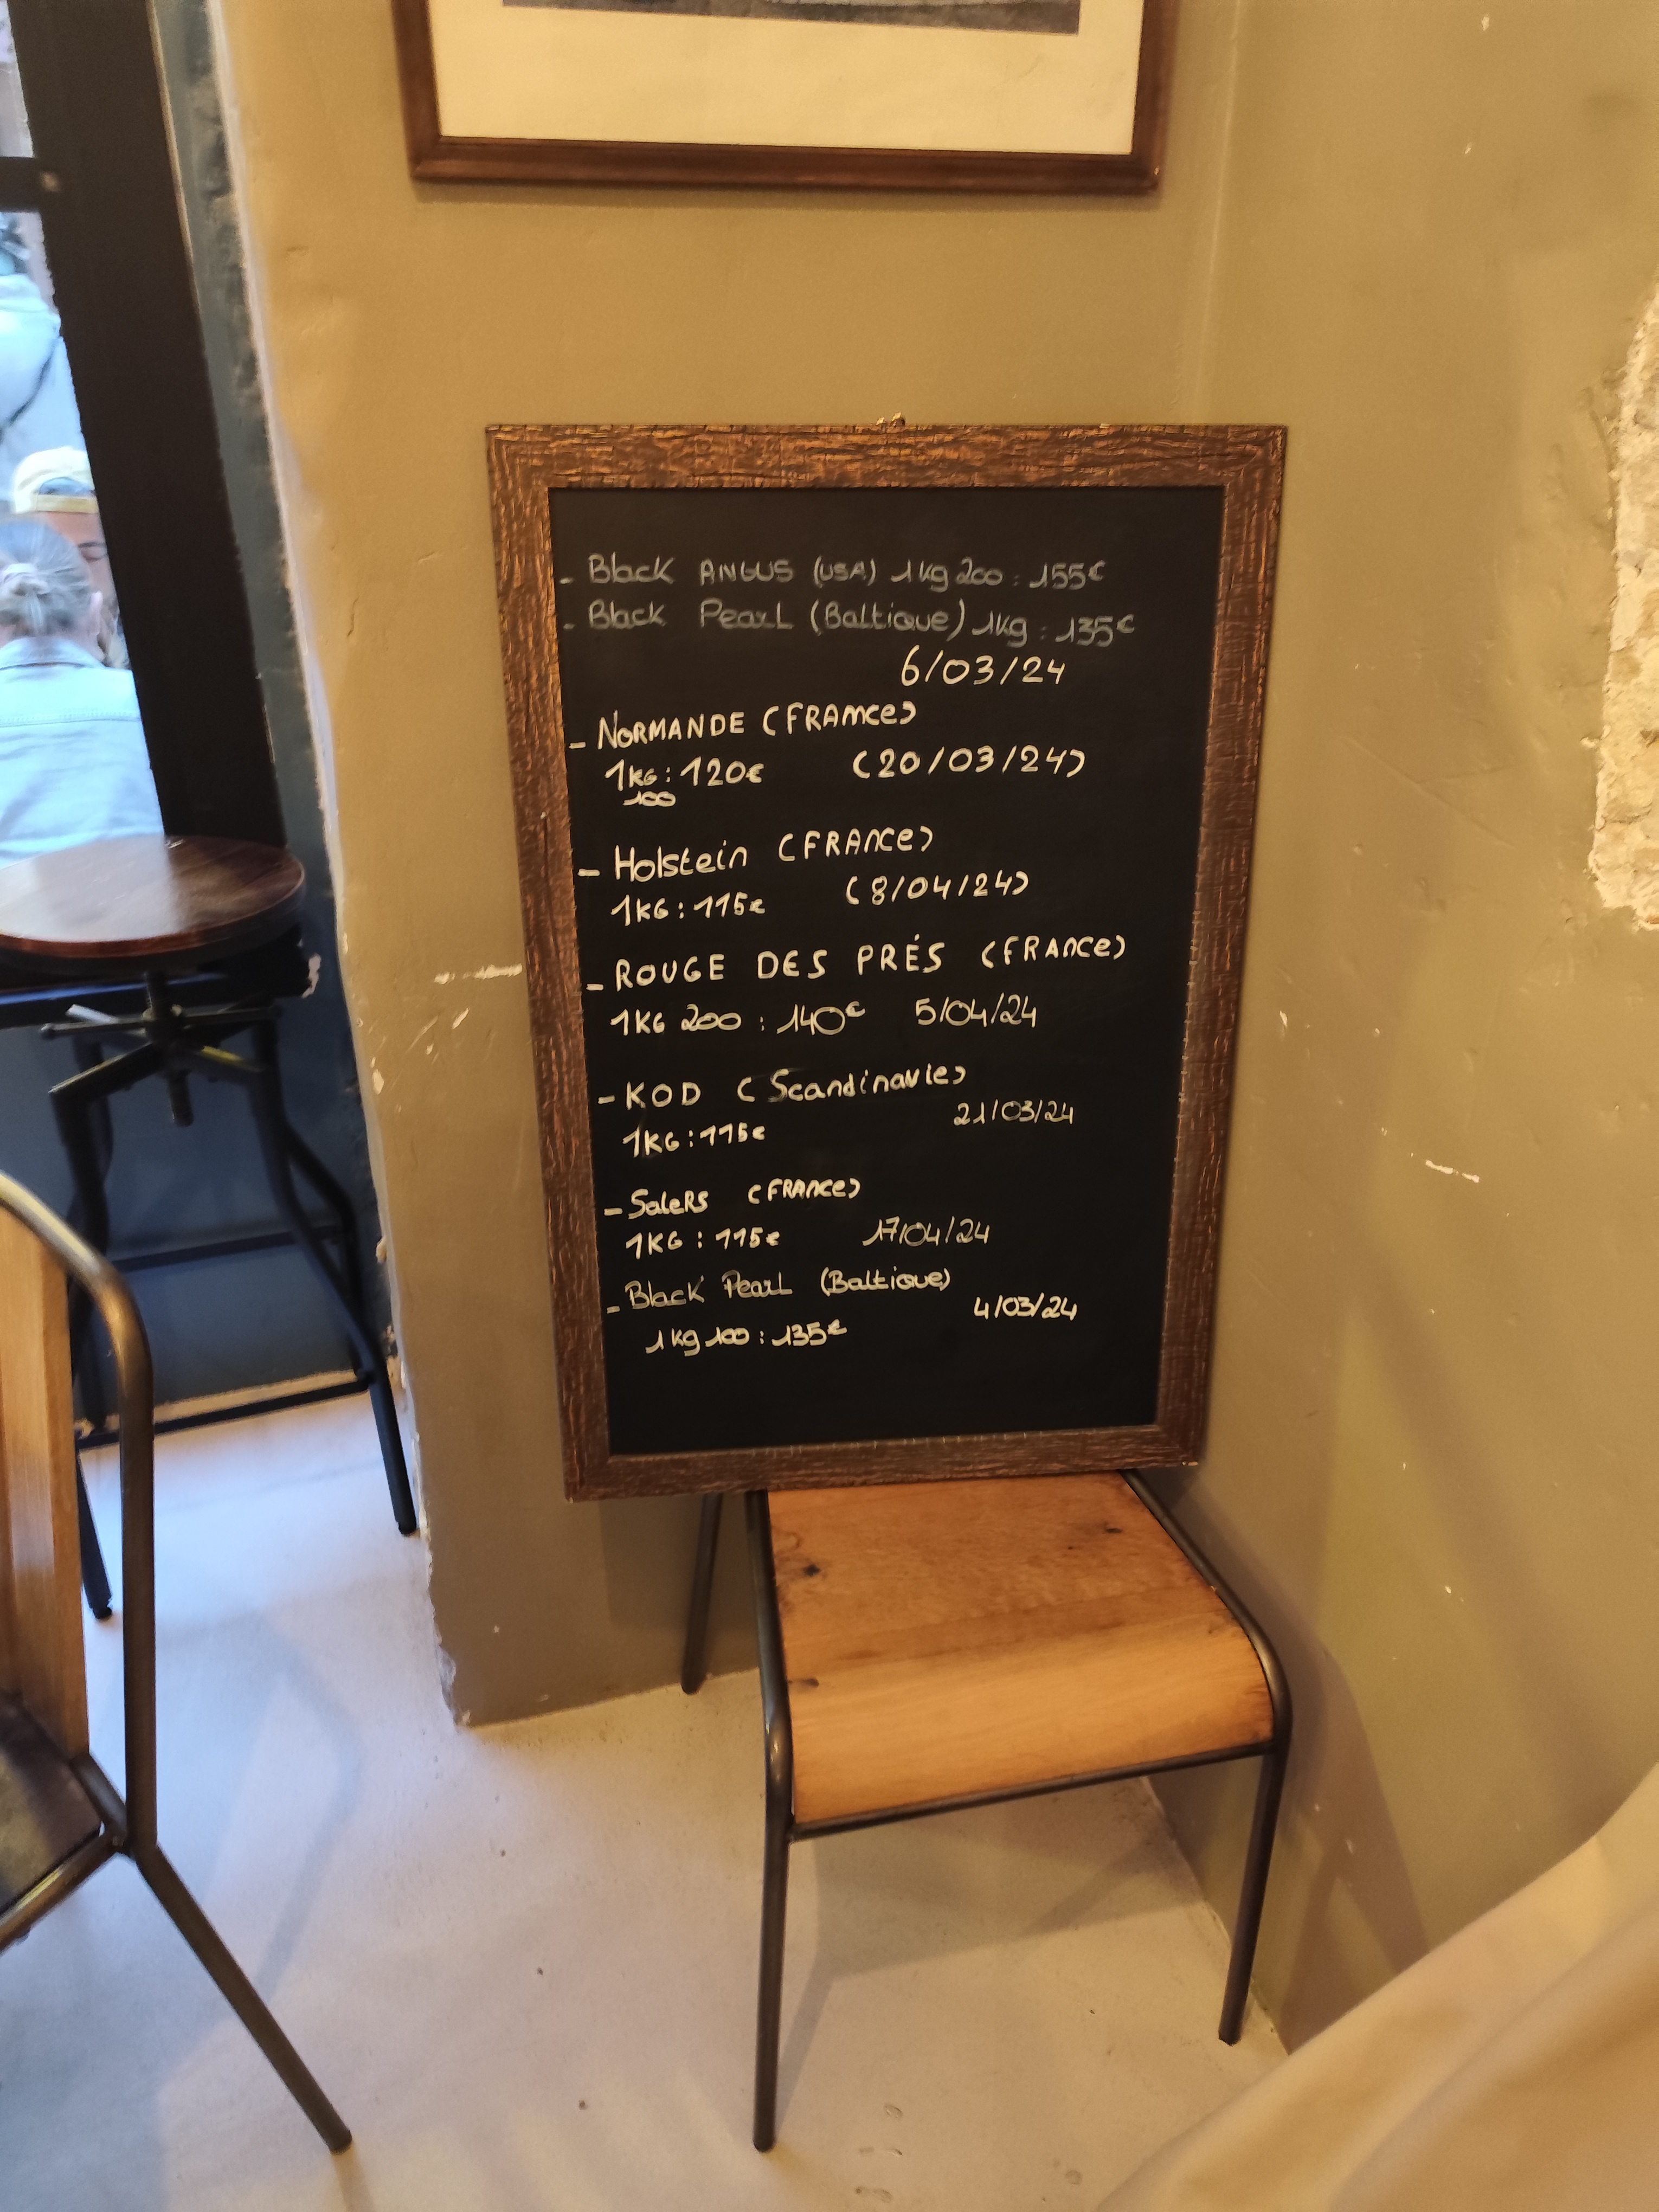 - Black ANGUS (USA) 1kg 200 : 155€
- Black Pearl (Baltique) 1kg : 135€
6/03/24
- NORMANDE (FRANCE)
1KG : 120€ (20/03/24)
100
- Holstein (FRANCE)
1KG : 115€ (8/04/24)
- ROUGE DES PRÉS (FRANCE)
1KG 200 : 140€ 5/04/24
- KOD (Scandinavie)
21/03/24
1KG : 115€
- SaleRS (FRANCE)
1KG : 115€ 17/04/24
- Black Pearl (Baltique)
4/03/24
1kg 100 : 135€